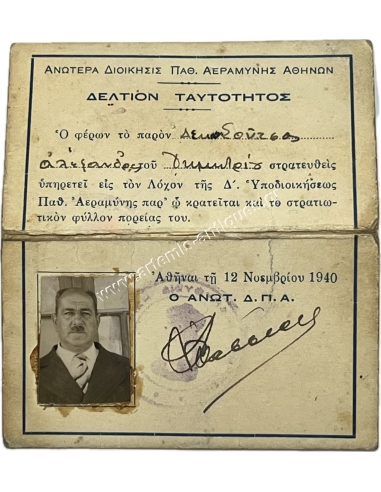 ΑΝΩΤΕΡΑ ΔΙΟΙΚΗΣΙΣ ΠΑΘ. ΑΕΡΑΜΥΝΗΣ ΑΘΗΝΩΝ
ΔΕΛΤΙΟΝ ΤΑΥΤΟΤΗΤΟΣ
Ὁ φέρων τὸ παρὸν
τοῦ στρατευθεὶς
ὑπηρετεῖ εἰς τὸν Λόχον τῆς Δ΄. Ὑποδιοικήσεως
Παθ. Ἀεραμύνης παρ' ᾧ κρατεῖται καὶ τὸ στρατιω-
τικὸν φύλλον πορείας του.
Ἀθῆναι τῇ 12 Νοεμβρίου 1940
Ο ΑΝΩΤ. Δ. Π. Α.